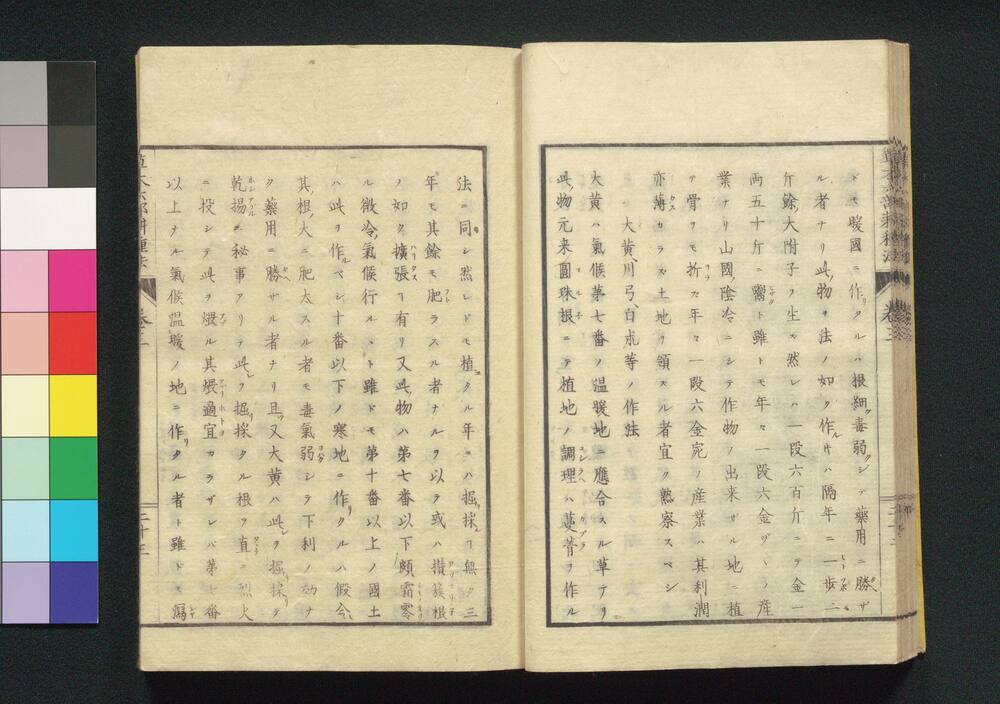 ドモ暖國ニ作リタルハ根細ク毒弱クシテ藥用ニ勝ザ
ル者ナリ此物ヲ法ノ如ク作ルトキハ隔年ニ一歩二
斤餘大附子ヲ生ズ然レハ一段六百斤ニテ金一
兩五十斤ニ鬻ト雖トモ年々一段六金ヅヽノ産
業ナリ山國陰冷ニシテ作物ノ出来ザル地ニ植
テ骨ヲモ折ズ年々一段六金宛ノ産業ハ其利潤
亦薄カラズ土地ヲ領スル者宜ク熟察スベシ
大黄川弓白朮等ノ作法
大黄ハ氣候第七番ノ温暖地ニ應合スル草ナリ
此物元来圓珠根ニテ植地ノ調理ハ蔓菁ヲ作ル
法ニ同シ然レドモ植タル年ニハ掘採ヿ無ク三
年モ其餘モ肥ラスル者ナルヲ以テ或ハ攢簇根
ノ如ク擴張ヿ有リ又此物ハ第七番以下頗霜零
ル微冷氣候行ルヽト雖ドモ第十番以上ノ國土
ハ此ヲ作ルベシ十番以下ノ寒地ニ作リタルハ假令
其根大ニ肥太スル者モ毒氣弱シテ下利ノ効ナ
ク藥用ニ勝ザル者ナリ且又大黄ハ此ヲ掘採テ
乾揚ニ秘事アリテ此ヲ掘採タル根ヲ直ニ烈火
ニ投シテ此ヲ煨ル其煨適宜カラザレバ第七番
以上ナル氣候温暖ノ地ニ作リタル者ト雖ドモ瀉
草木六部耕種法
卷之二
二十三